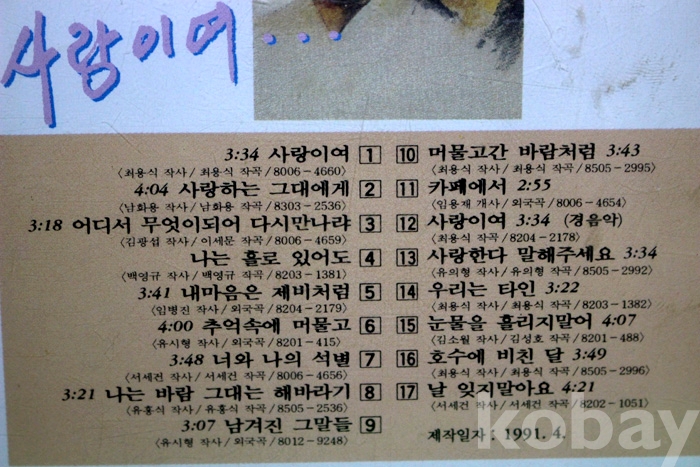 사랑이여...
3:34 사랑이여 1
(최용식 작사/최용식 작곡/8006-4660)
4:04 사랑하는 그대에게 2
(남화용 작사/남화용 작곡/8303-2536)
3:18 어디서 무엇이되어 다시만나랴 3
(김광섭 작사/이세문 작곡/8006-4659)
나는 홀로 있어도 4
(백영규 작사/백영규 작곡/8203-1381)
3:41 내마음은 제비처럼 5
(임병진 작사/외국곡/8204-2179)
4:00 추억속에 머물고 6
(유시형 작사/외국곡/8201-415)
3:48 너와 나의 석별 7
(서세건 작사/서세건 작곡/8006-4656)
3:21 나는 바람 그대는 해바라기 8
(유홍식 작사/유홍식 작곡/8505-2536)
3:07 남겨진 그말들 9
(유시형 작사/외국곡/8012-9248)
10 머물고간 바람처럼 3:43
(최용식 작사/최용식 작곡/8505-2995)
11 카페에서 2:55
(임용재 개사/외국곡/8006-4654)
12 사랑이여 3:34 (경음악)
(최용식 작곡/8204-2178)
13 사랑한다 말해주세요 3:34
(유의형 작사/유의형 작곡/8505-2992)
14 우리는 타인 3:22
(최용식 작사/최용식 작곡/8203-1382)
15 눈물을 흘리지말어 4:07
(김소월 작사/김성호 작곡/8201-488)
16 호수에 비친 달 3:49
(최용식 작사/최용식 작곡/8505-2996)
17 날 잊지말아요 4:21
(서세건 작사/서세건 작곡/8202-1051)
제작일자 : 1991. 4.
kobay